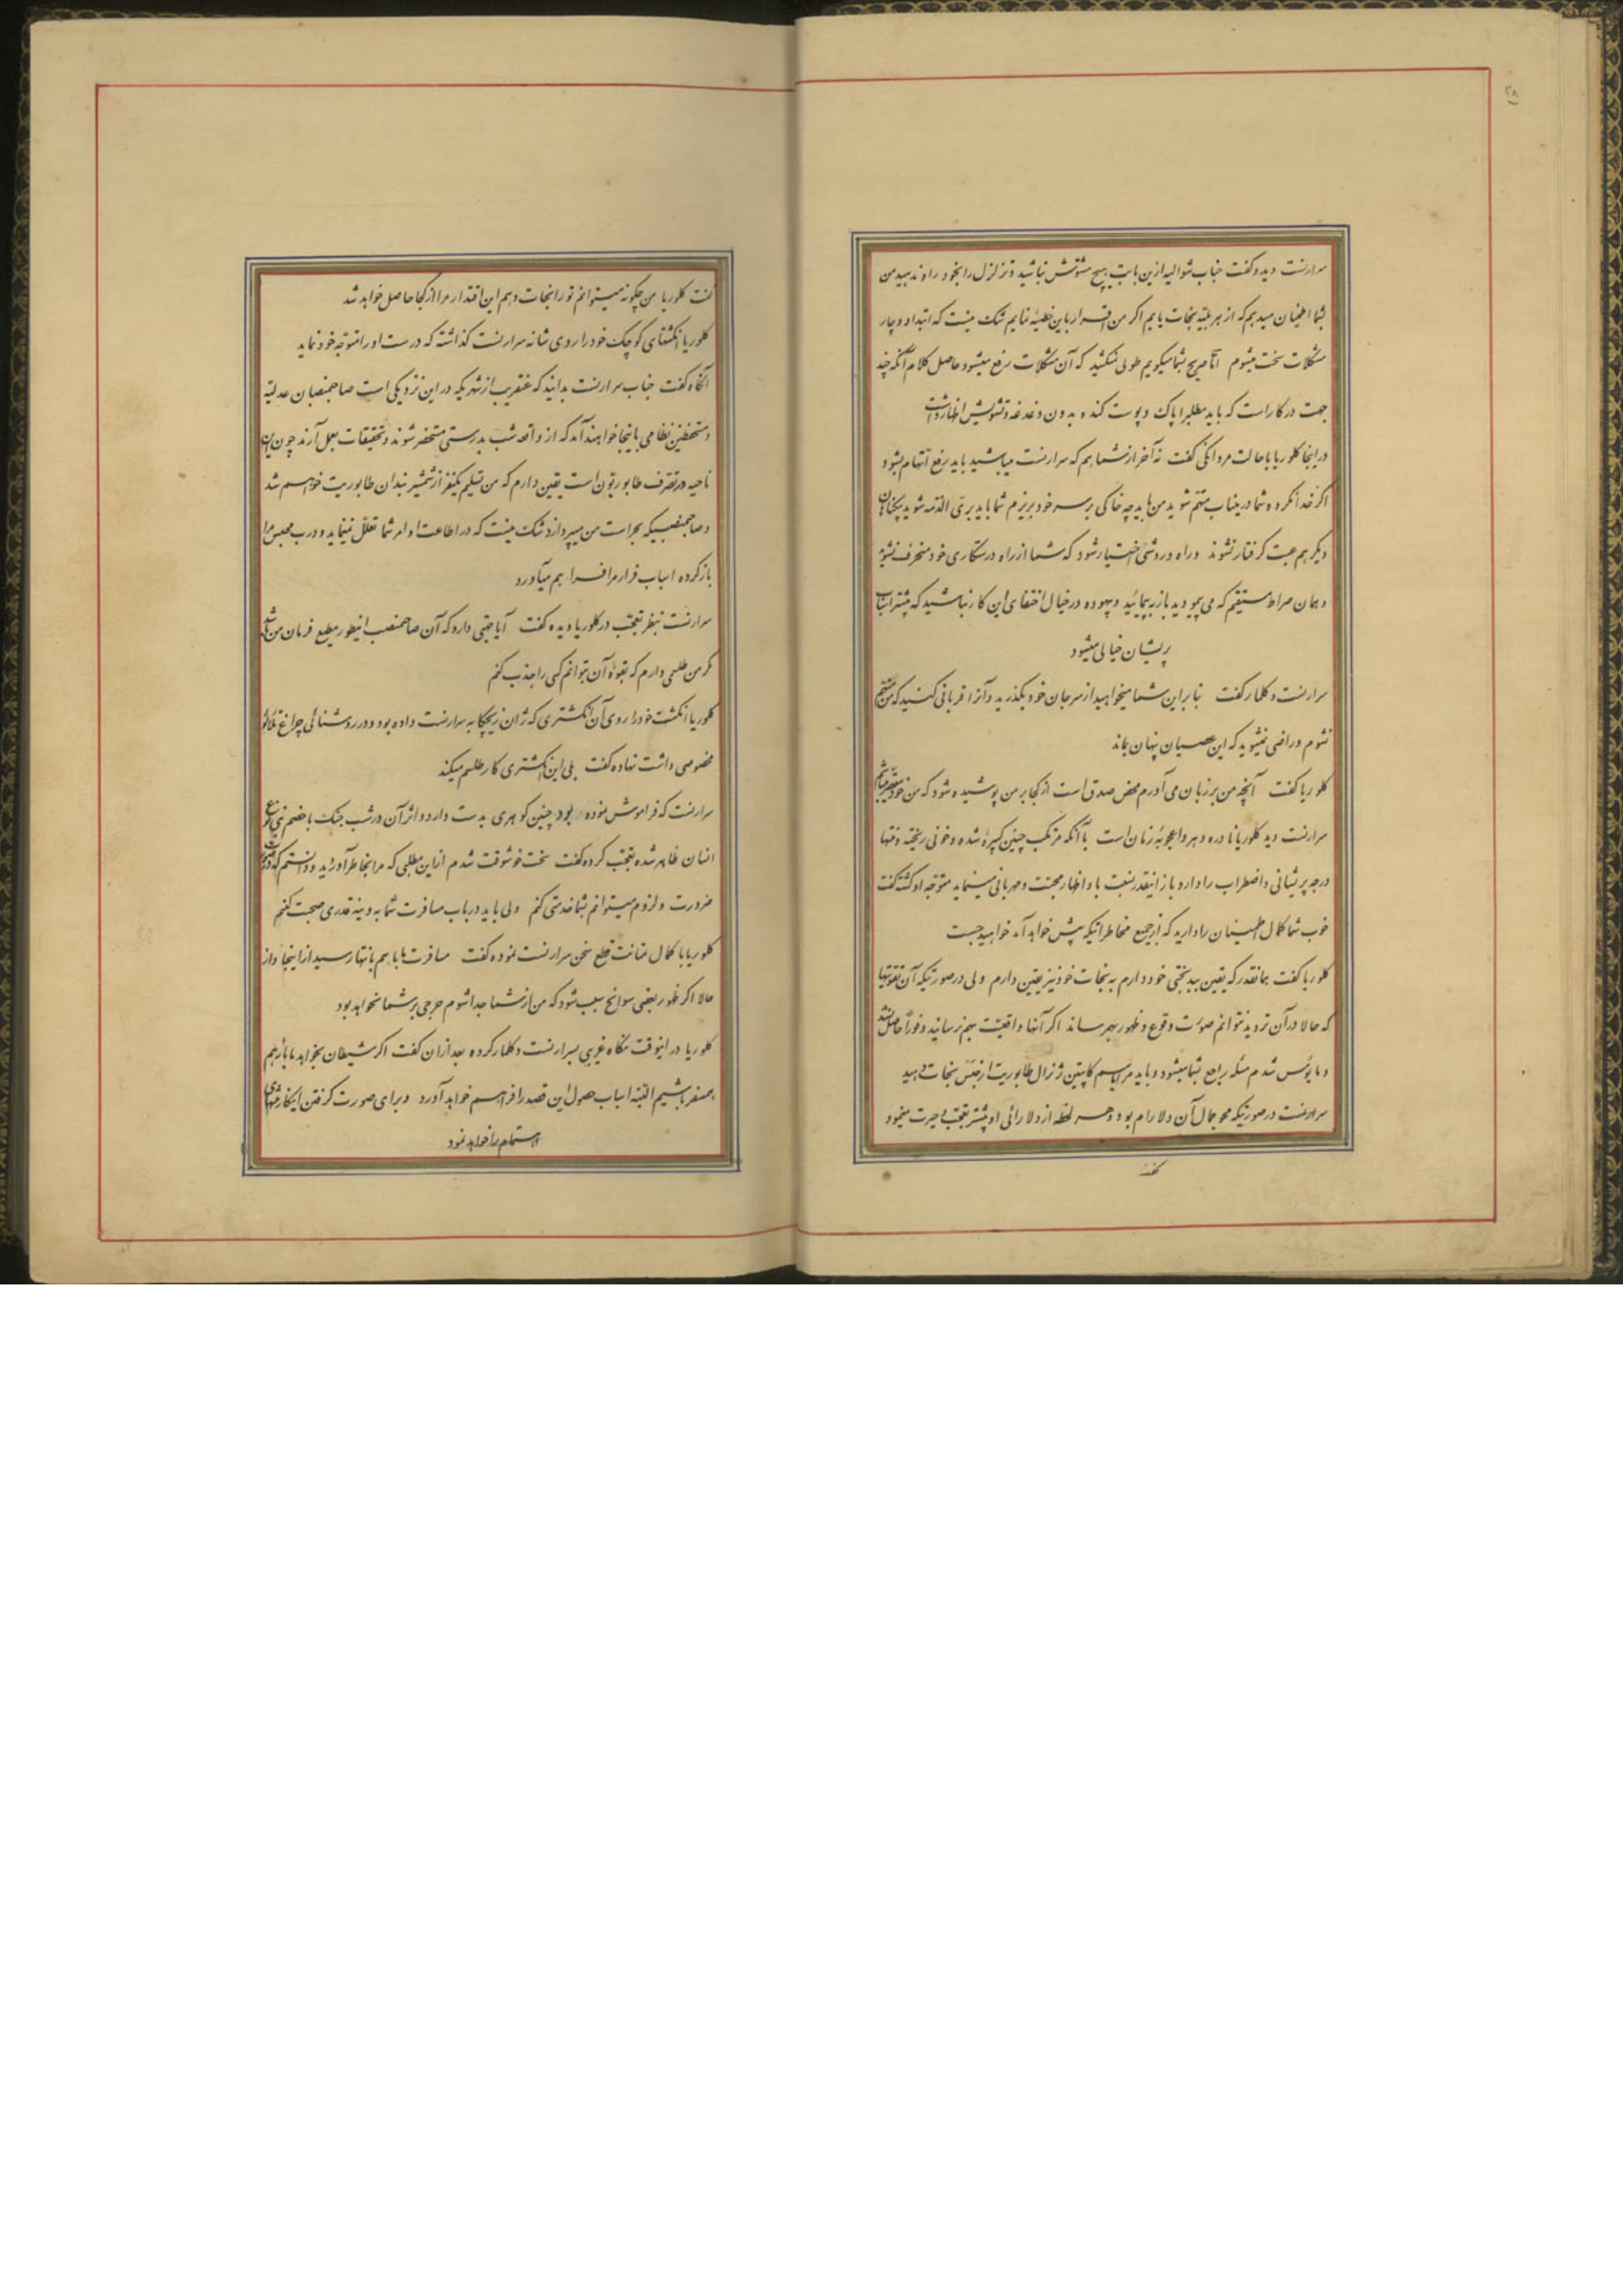 ۲۸
سرارنست دید و گفت جناب شوالیه ازین بابت هیچ مشوش نباشید و تزلزل را بخود راه ندهید من
بشما اطمینان میدهم که از هر بلیه نجات یابم اکر من اقرار باین خطیئه نمایم شک نیست که ابتدا دوچار
مشکلات سخت میشوم امّا صریح بشما میکویم طولی نمیکشد که آن مشکلات رفع میشود حاصل کلام آنکه چند
جهت در کار است که باید مطلب را پاک و پوست کنده بدون دغدغه و تشویش اظهار داشت
در اینجا کلوریا با حالت مردانکی گفت نه آخر از شما هم که سرارنست میباشید باید رفع اتهام بشود
اکر خدا نکرده شما درینباب متهم شوید من باید چه خاکی بر سر خود بریزم شما باید بریّ الذمّه شوید بیکناهان
دیکر هم عبث کرفتار نشوند و راه و روشی اختیار شود که شما از راه درستکاری خود منحرف نشوید
و همان صراط مستقیم که می پیمودید باز به پیمائید و بیهوده در خیال اختفای این کار نباشید که بیشتر اسباب
پریشان خیالی میشود
سرارنست دکلمار گفت بنابراین شما میخواهید از سر جان خود بگذرید و آنرا قربانی کنید که من متهم
نشوم و راضی نمیشوید که این عصیان پنهان بماند
کلوریا گفت آنچه من بر زبان می آورم محض صدق است از کجا بر من پوشیده شود که من خود مقصر میباشم
سرارنست دید کلوریا نادره دهر و اعجوبه زمان است با آنکه مرتکب چنین کبیره شده و خونی ریخته و منتها
درجه پریشانی و اضطراب را دارد باز اینقدر نسبت باو اظهار محبت و مهربانی مینماید متوجه او کشته گفت
خوب شما کمال اطمینان را دارید که از جمیع مخاطراتیکه پیش خواهد آمد خواهید جست
کلوریا گفت همانقدر که یقین ببدبختی خود دارم به نجات خود نیز یقین دارم ولی در صورتیکه آن تقویتها
که حالا در آن تردید نتوانم صورت وقوع و ظهور بهم رساند اکر آنها واقعیت بهم نرسانید و فوراً حاصل نشد
و مایوس شدم مسئله راجع بشما میشود و باید مرا باسم کاپیتن ژنرال طابوریت از حبس نجات دهید
سرارنست در صورتیکه محو جمال آن دلارام بود و هر لحظه از دلارائی او بیشتر تعجب و حیرت مینمود
گفت
گفت کلوریا من چگونه میتوانم تو را نجات دهم این اقتدار مرا از کجا حاصل خواهد شد
کلوریا انگشتهای کوچک خود را روی شانه سرارنست گذاشته که درست او را متوجه خود نماید
آنگاه گفت جناب سرارنست بدانید که عنقریب از شهریکه در این نزدیکی است صاحبمنصبان عدلیّه
و مستحفظین نظامی باینجا خواهند آمد که از واقعه شب بدرستی مستحضر شوند و تحقیقات بعمل آرند چون این
ناحیه در تصرف طابوریتون است یقین دارم که من تسلیم یکنفر از شمشیربندان طابوریت خواهم شد
و صاحبمنصبیکه بحراست من میپردازد شک نیست که در اطاعت اوامر شما تعلل نمینماید و درب محبس را
باز کرده اسباب فرار مرا فراهم میآورد
سرارنست بنظر تعجب در کلوریا دیده گفت آیا جهتی دارد که آن صاحبمنصب اینطور مطیع فرمان من باشد
مکر من طلسمی دارم که بقوه آن بتوانم کسی را جذب کنم
کلوریا انگشت خود را روی آن انگشتری که ژان زیچکا به سرارنست داده بود و در روشنائی چراغ تلألؤ
مخصوصی داشت نهاده گفت بلی این انگشتری کار طلسم میکند
سرارنست که فراموش نموده بود چنین کوهری بدست دارد و اثر آن در شب جنک با خصم
انسان ظاهر شده تعجب کرده گفت سخت خوشوقت شدم از این مطلبی که مرا بخاطر آوردید و دانستم که در صورت
ضرورت و لزوم میتوانم بشما خدمتی کنم ولی باید در باب مسافرت شما به وینه قدری صحبت کنیم
کلوریا با کمال متانت قطع سخن سرارنست نموده گفت مسافرت ما با هم بانتها رسید از اینجا و از
حالا اکر ظهور بعضی سوانح سبب شود که من از شما جدا شوم حرجی بر شما نخواهد بود
کلوریا در اینوقت نگاه غریبی بسرارنست دکلمار کرده بعد از آن گفت اکر شیطان بخواهد ما باز هم
همسفر باشیم البته اسباب حصول این قصد را فراهم خواهد آورد و برای صورت گرفتن اینکار منتهای
اهتمام را خواهد نمود